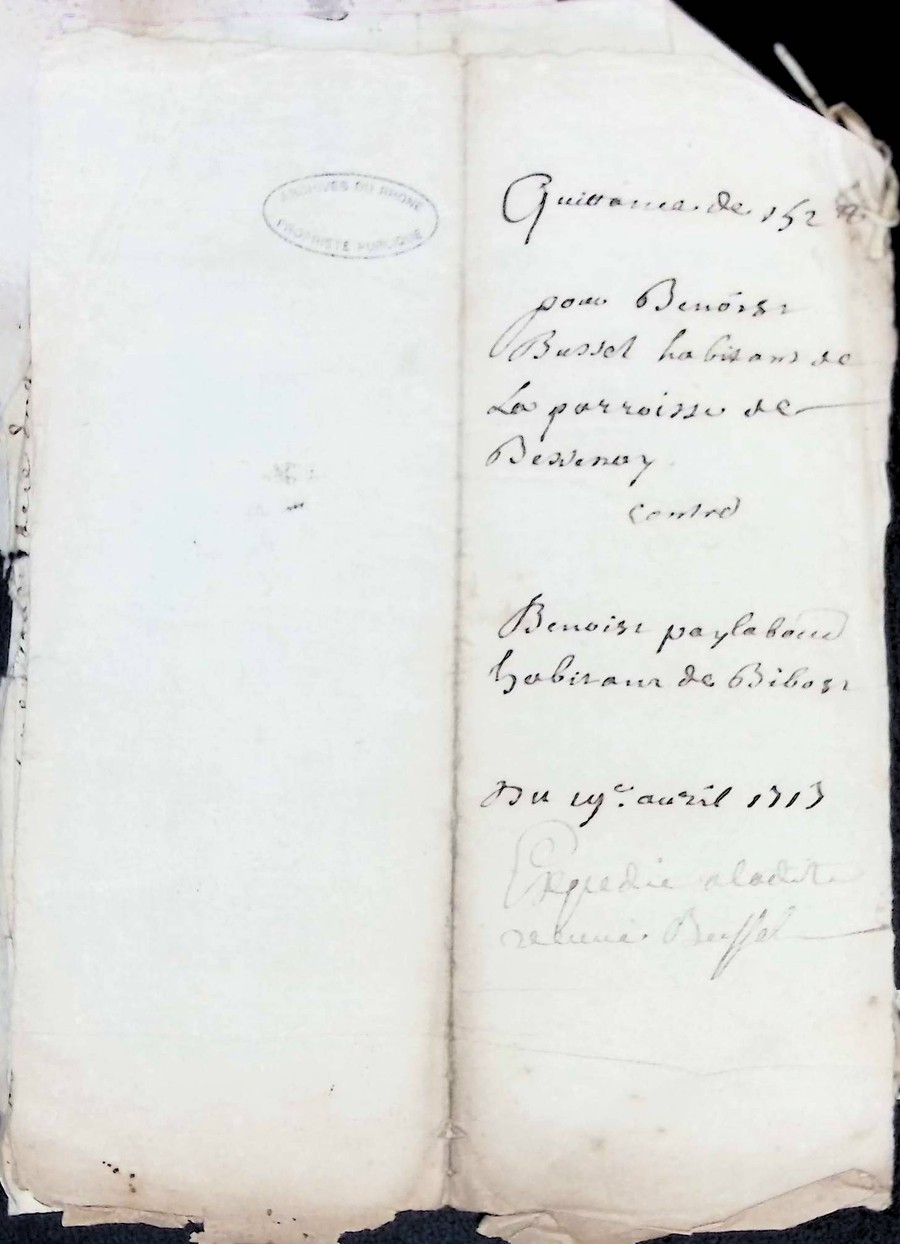 ARCHIVES DU RHONE
PROPRIETE PUBLIQUE
Quittance de 152 ##
pour Benoist
Bussel habitant de
La parroisse de
Bessenay
contre
Benoist paylaboud
habitant de Bibost
Du 19e. avril 1713
Expedié a ladite
Bussel